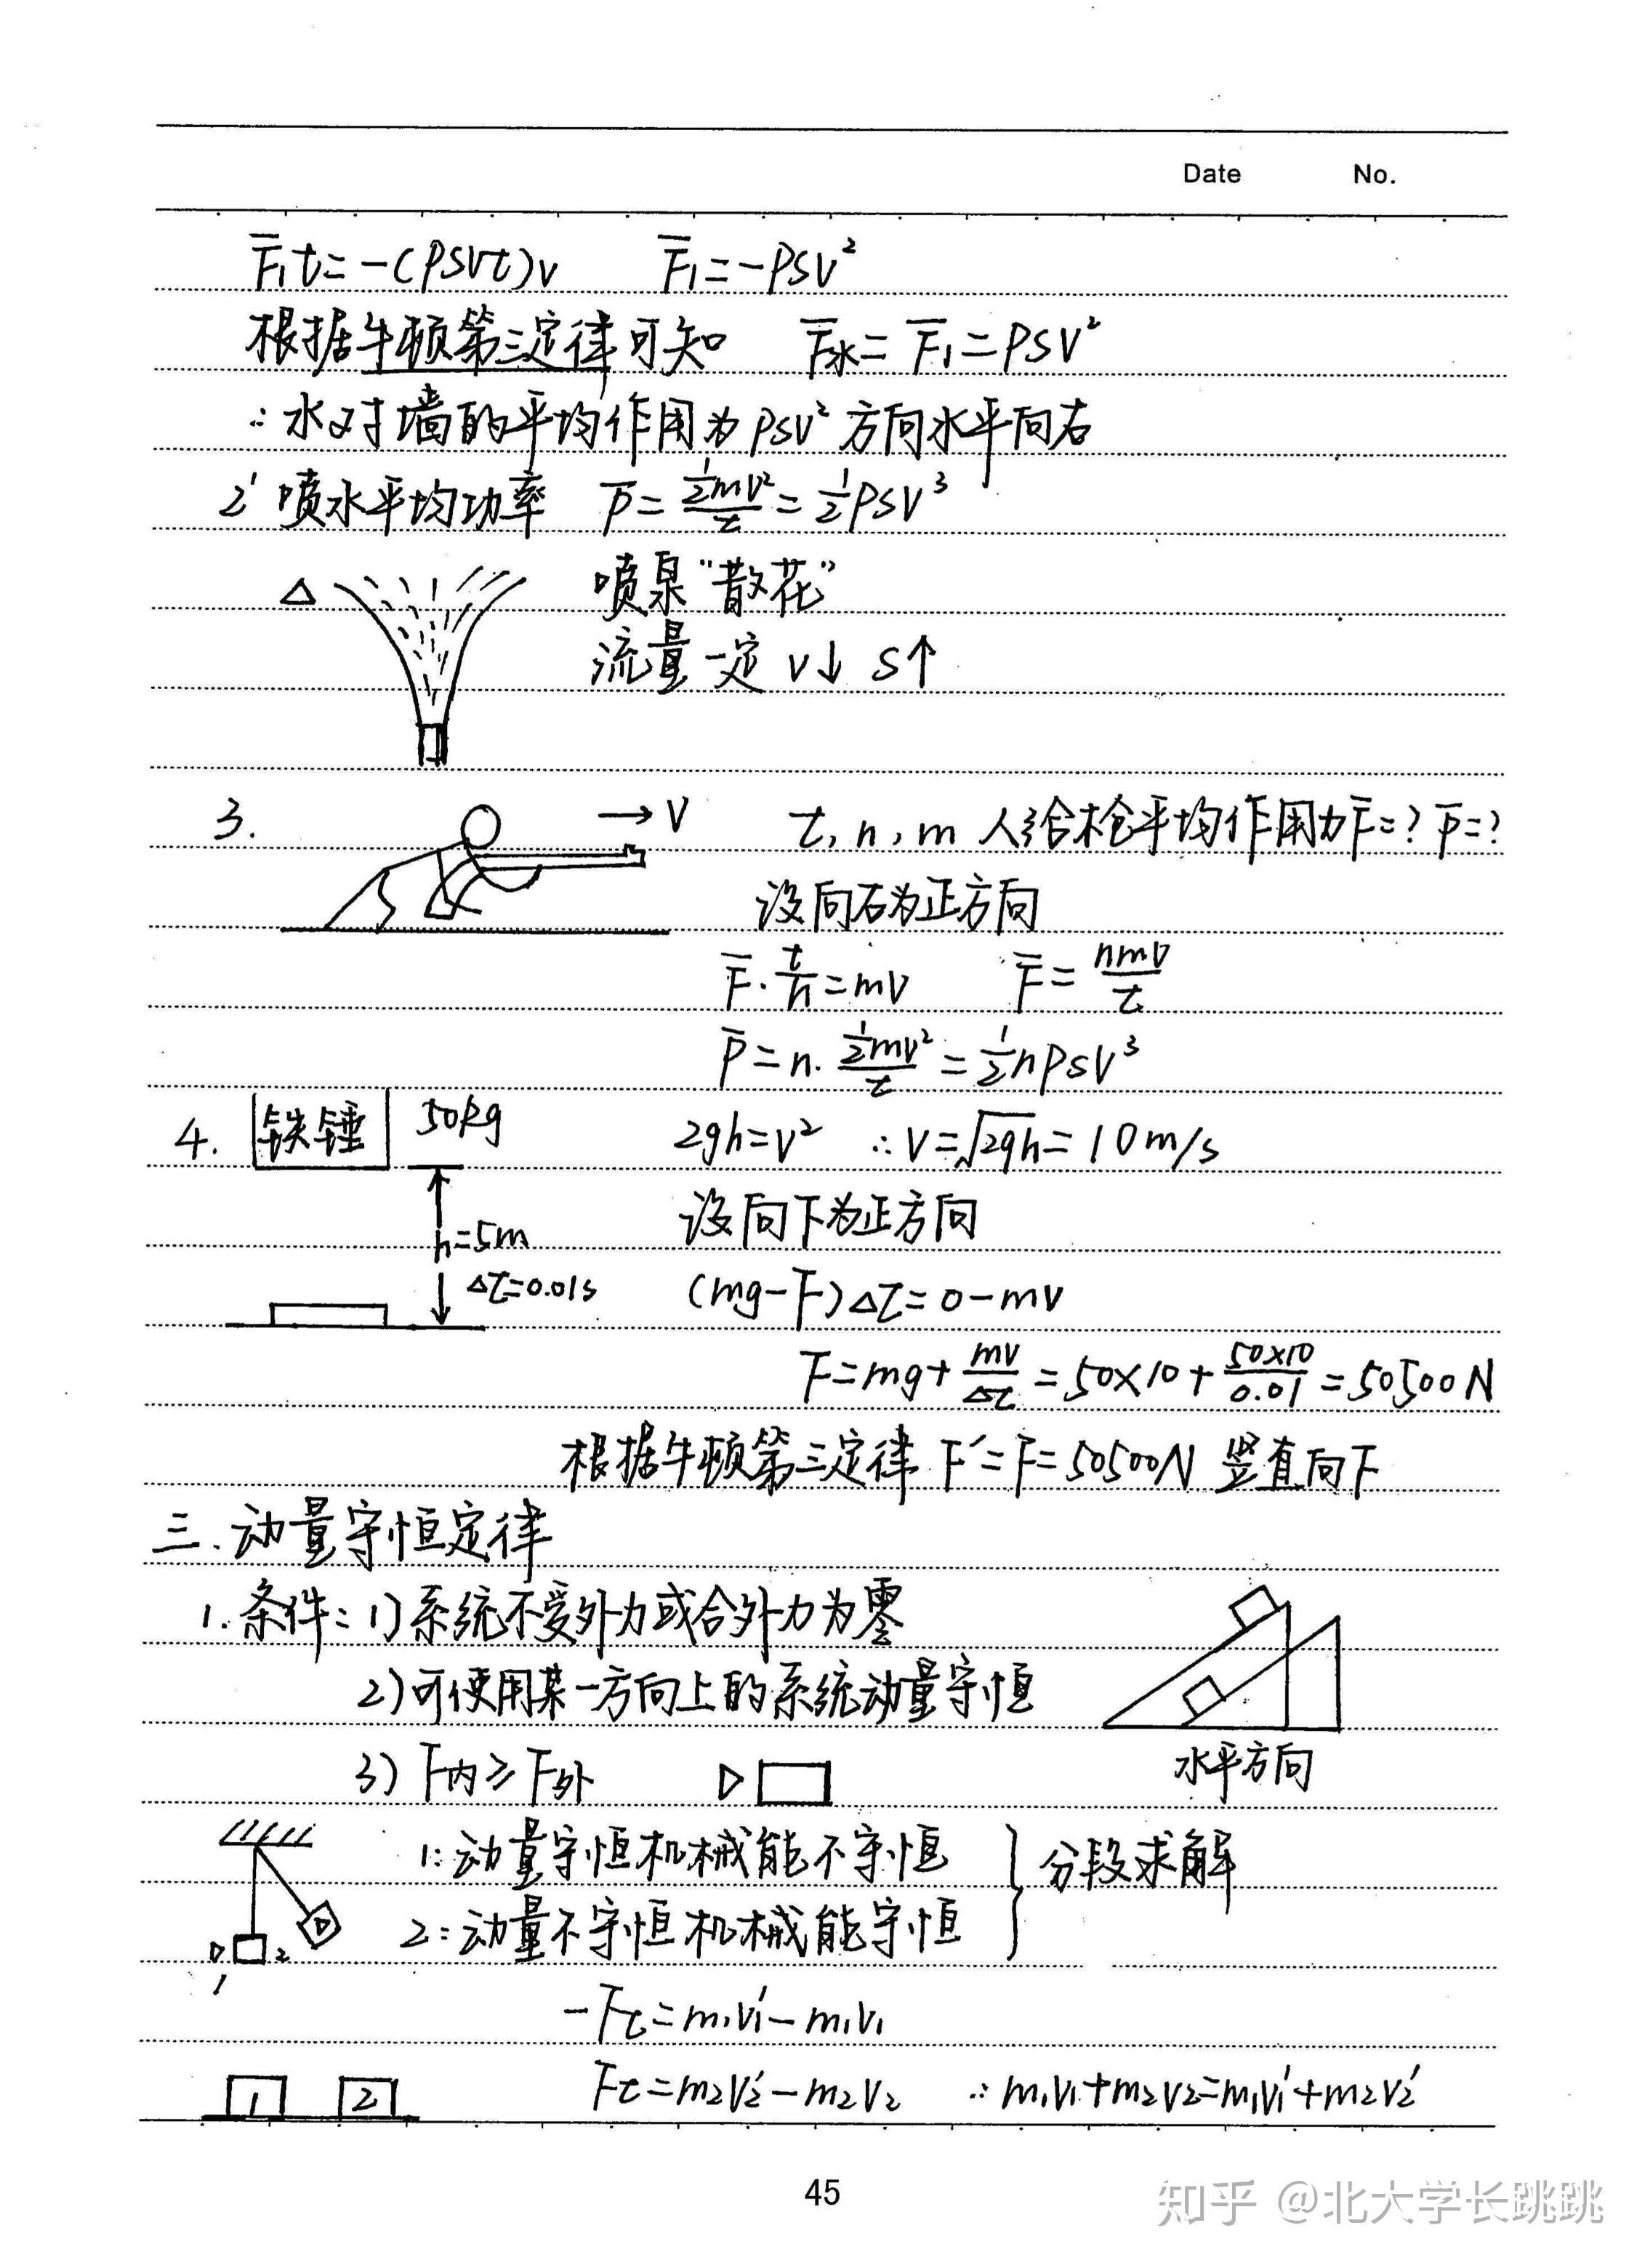 Date No.
F̄₁t=-(ρSvt)v F̄₁=-ρSv²
根据牛顿第三定律可知 F̄水=F̄₁=ρSv²
∴水对墙的平均作用为ρSv²方向水平向右
2' 喷水平均功率 P̄=½mv²/t=½ρSv³
△ 喷泉"散花"
流量一定 v↓ S↑
3. →v t, n, m 人给枪平均作用力F̄=? P̄=?
设向右为正方向
F̄·t/n=mv F̄=nmv/t
P̄=n·½mv²/t=½nρSv³
4. 铁锤 50kg 2gh=v² ∴v=√2gh=10m/s
h=5m 设向下为正方向
Δt=0.01s (mg-F)Δt=0-mv
F=mg+mv/Δt=50×10+50×10/0.01=50500N
根据牛顿第三定律 F'=F=50500N 竖直向下
三.动量守恒定律
1.条件:1)系统不受外力或合外力为零
2)可使用某一方向上的系统动量守恒
3)F内≥F外 水平方向
1:动量守恒机械能不守恒 } 分段求解
2:动量不守恒机械能守恒
1 2
-Ft=m₁v₁'-m₁v₁
1 2 Ft=m₂v₂'-m₂v₂ ∴m₁v₁+m₂v₂=m₁v₁'+m₂v₂'
45
知乎 @北大学长跳跳